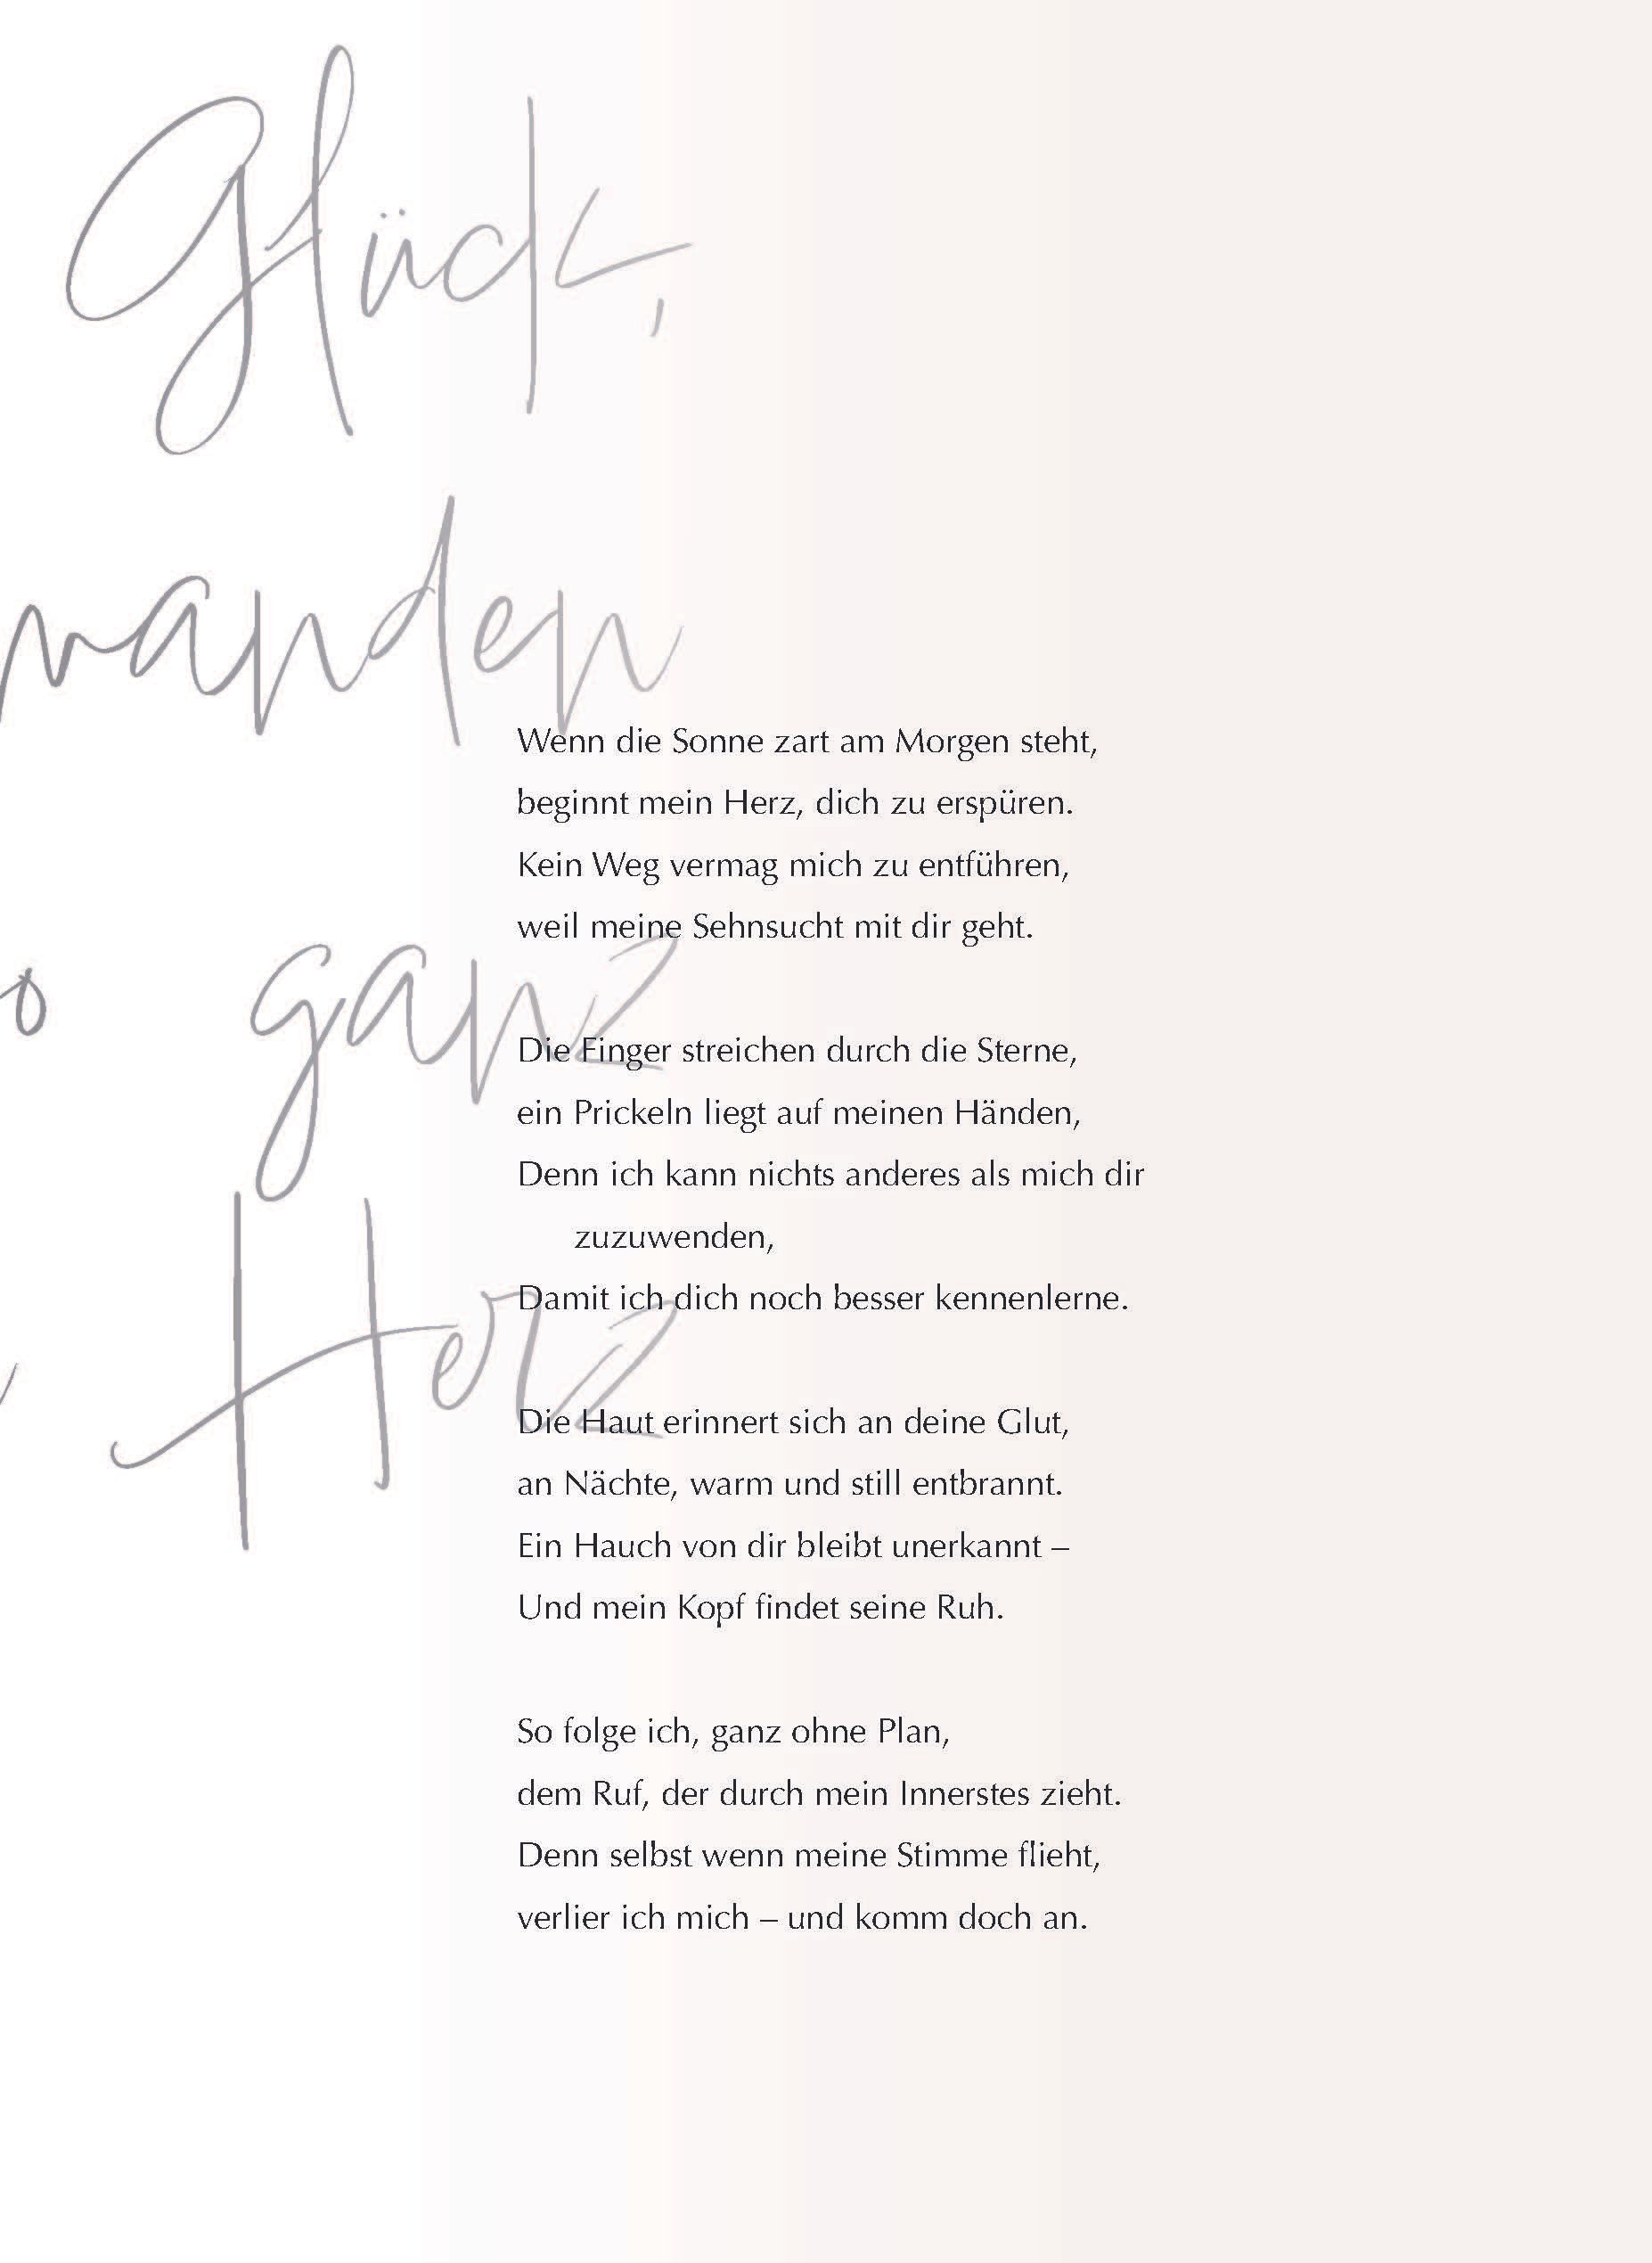 Glück,
manden
ganz
Herz
Wenn die Sonne zart am Morgen steht,
beginnt mein Herz, dich zu erspüren.
Kein Weg vermag mich zu entführen,
weil meine Sehnsucht mit dir geht.
Die Finger streichen durch die Sterne,
ein Prickeln liegt auf meinen Händen,
Denn ich kann nichts anderes als mich dir
zuzuwenden,
Damit ich dich noch besser kennenlerne.
Die Haut erinnert sich an deine Glut,
an Nächte, warm und still entbrannt.
Ein Hauch von dir bleibt unerkannt –
Und mein Kopf findet seine Ruh.
So folge ich, ganz ohne Plan,
dem Ruf, der durch mein Innerstes zieht.
Denn selbst wenn meine Stimme flieht,
verlier ich mich – und komm doch an.